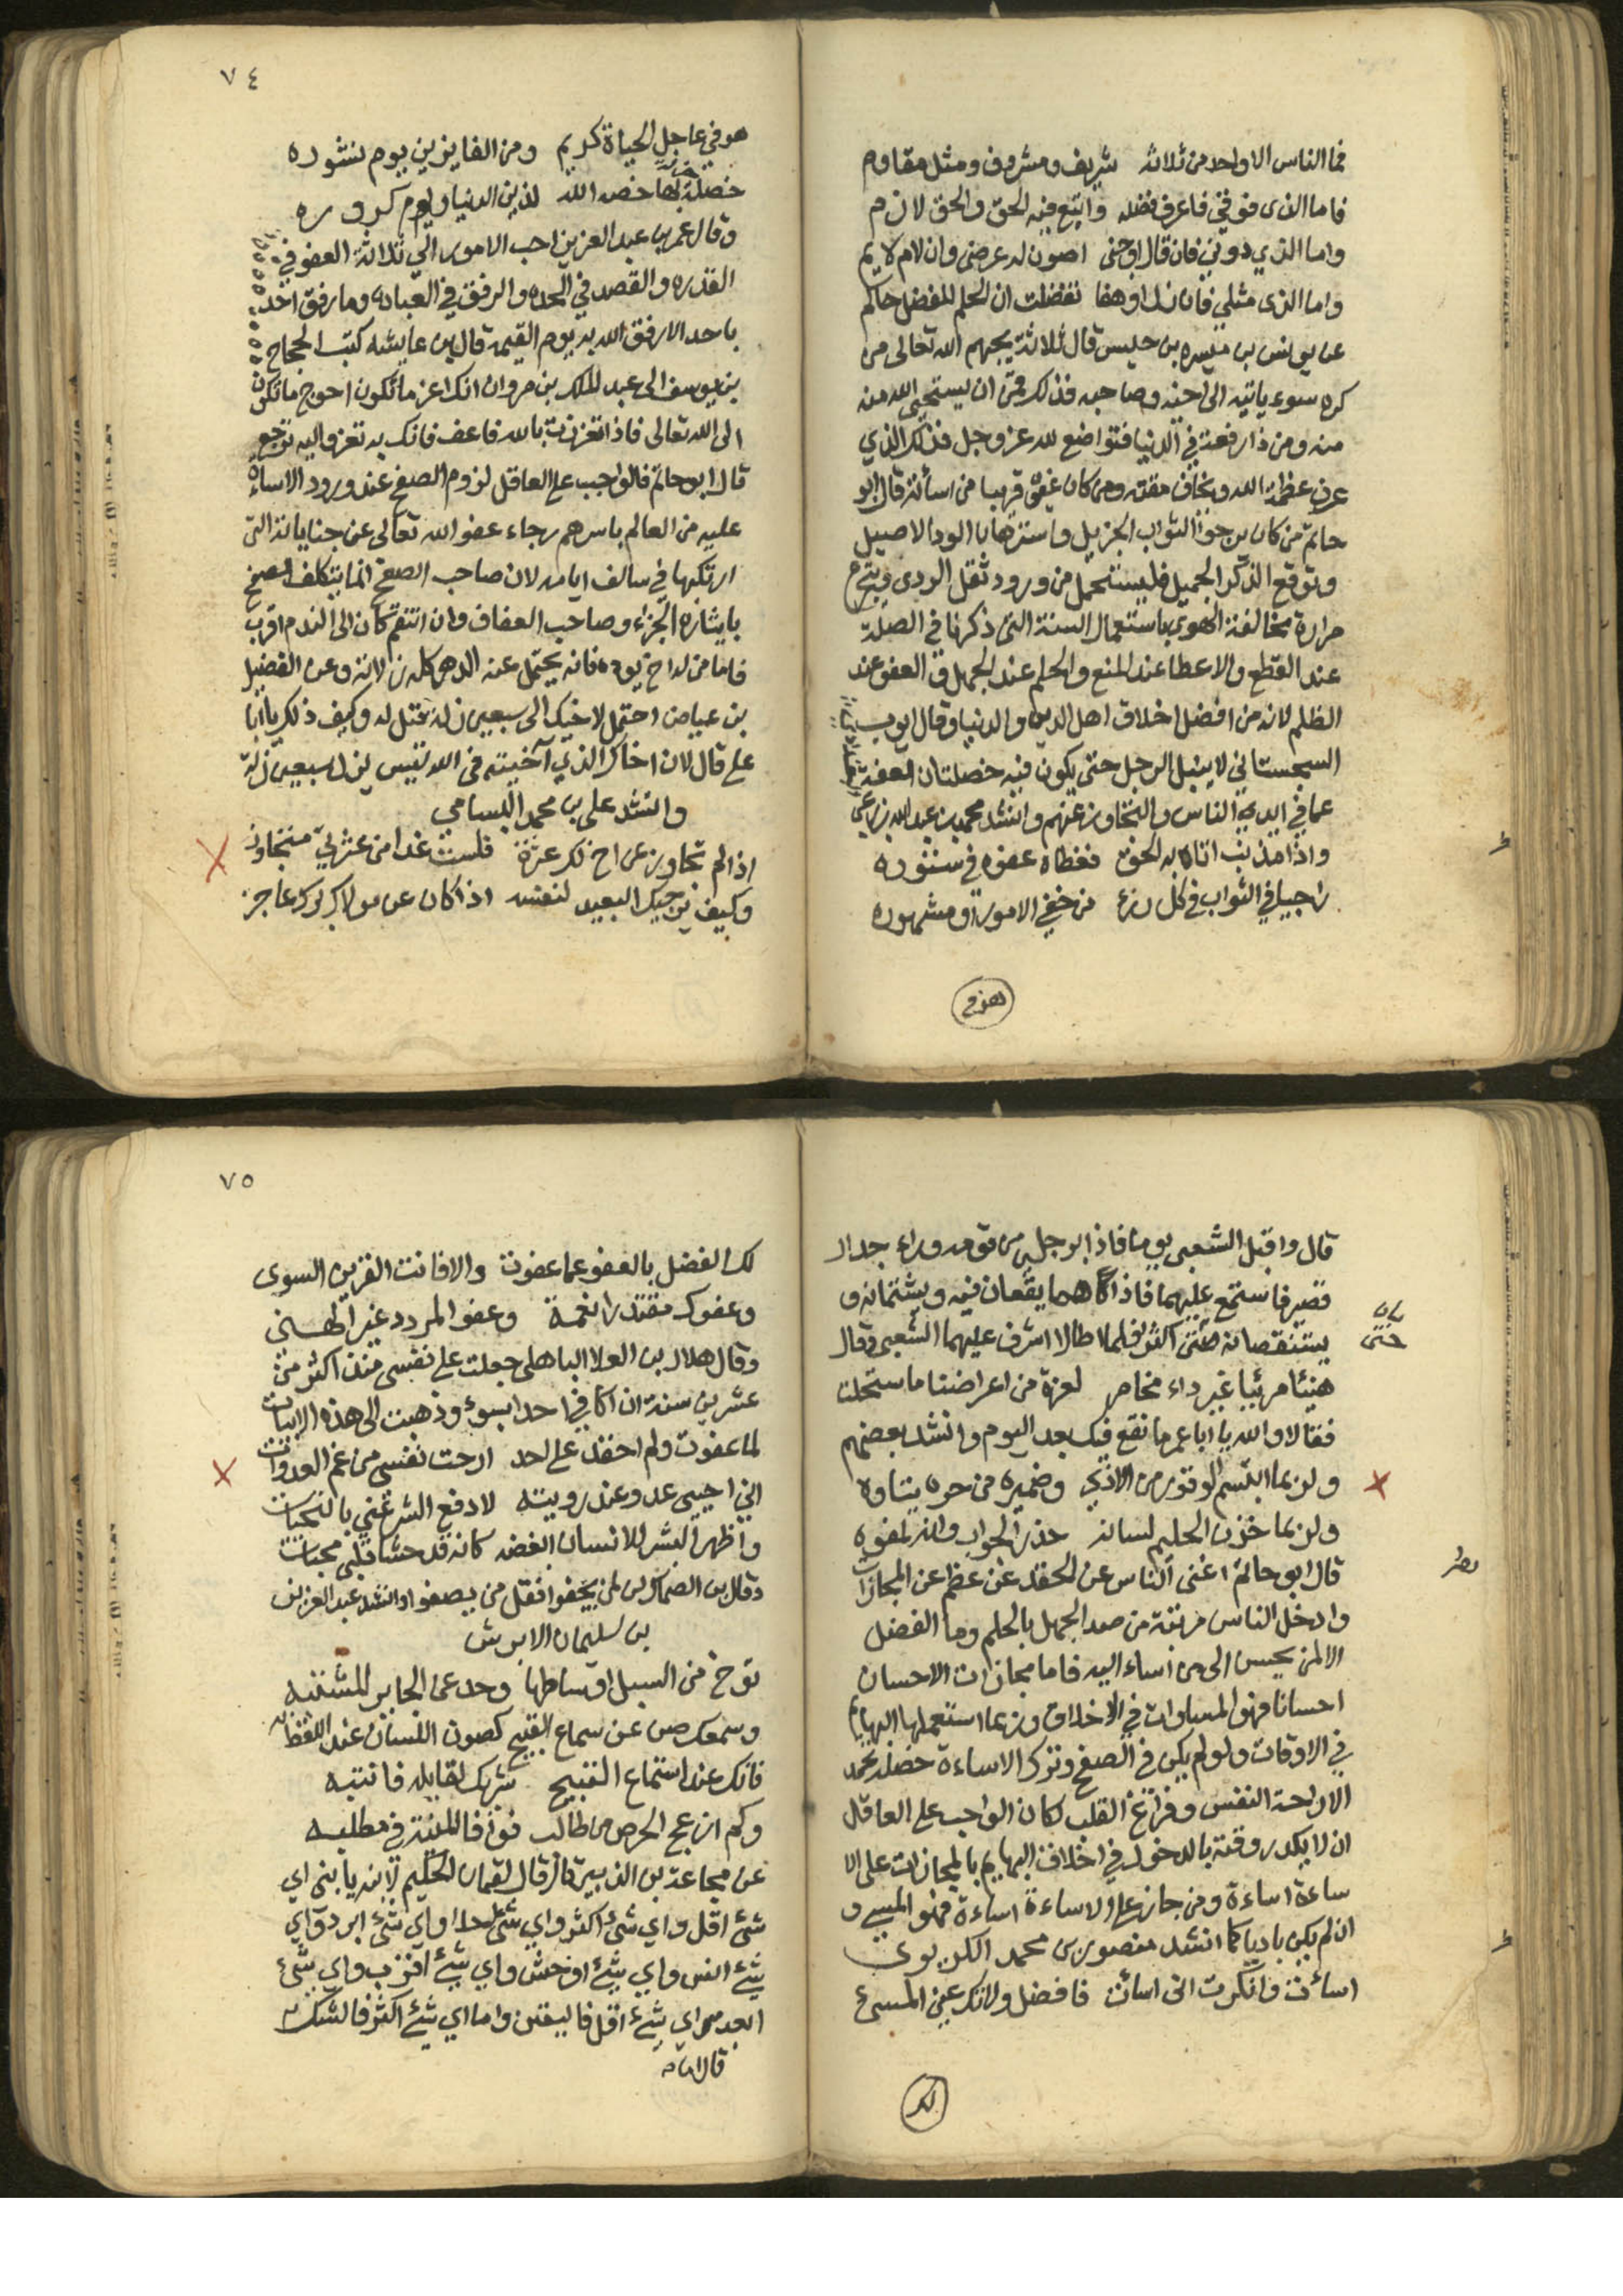 فما الناس الا واحد من ثلاثة شريف ومشروف ومثل مقاوم
فاما الذى فوقي فاعرف فضله واتبع فيه الحق والحق لازم
واما الذي دوني فان قال اوجنى اصون له عرضى وان لام لايم
واما الذى مثلي فان زل او هفا تفضلت ان الحلم للفضل حاكم
عن يونس بن ميسره بن حليس قال ثلاثة يحبهم الله تعالى من
كره سوء ياتيه الى اخيه وصاحبه فذلك قمن ان يستحيي الله منه
منه ومن ذا رفعة في الدنيا فتواضع لله عز وجل فذلك الذي
عرف عظمة الله ويخاف مقته ومن كان عفوه قريبا من اسائته قال ابو
حاتم من كان يرجوا الثواب الجزيل واسترهان الود الاصيل
وتوقع الذكر الجميل فليستحمل من ورود ثقل الردى ويتجرع
مرارة مخالفة الهوي باستعمال السنة التى ذكرنا في الصلة
عند القطع والاعطا عند المنع والحلم عند الجهل والعفو عند
الظلم لانه من افضل اخلاق اهل الدين والدنيا وقال ايوب
السجستاني لا ينبل الرجل حتى يكون فيه خصلتان العفة
عما في ايدي الناس والتجاوز عنهم وانشد محمد بن عبد الله
واذا مذنب اتاك به الحق فغطاه عفوه في ستوره
راجيا في الثواب في كل رزء من خفي الامور او مشهوره
٧٤
هو في عاجل الحياة كريم ومن الفايزين يوم نشوره
خصلة خصه الله لذي الدنيا ويوم كروره
وقال عمر بن عبد العزيز احب الامور الي ثلاثة العفو في
القدره والقصد في الجده والرفق في العباده وما رفق احد
باحد الا رفق الله به يوم القيمة قال بن عايشه كتب الحجاج
بن يوسف الى عبد الملك بن مروان انك اعز ما تكون احوج ما تكون
الى الله تعالى فاذا تعززت بالله فاعف فانك به تعز واليه ترجع
قال ابو حاتم فالواجب على العاقل لزوم الصفح عند ورود الاساءة
عليه من العالم باسرهم رجاء عفو الله تعالى عن جناياته التى
ارتكبها في سالف ايامه لان صاحب الصفح انما يتكلف الصفح
بايثاره الجزاء وصاحب العفاف وان انتقم كان الى الندم اقرب
فاما من له اخ يوده فانه يحتمل عنه الدهر كله زلاته وعن الفضيل
بن عياض احتمل لاخيك الى سبعين زلة فقيل له وكيف ذلك يا ابا
علي قال لان اخاك الذي آخيته في الله ليس يزل سبعين زلة
وانشد علي بن محمد البسامي
اذا لم تجاوز عن اخ لك عثرة فلست غدا من عثرتي متجاوز
وكيف يرجيك البعيد لنفسه اذا كان عن مولاك برك عاجز
قال واقبل الشعبى يوما فاذا برجلين من قومه وراء جدار
قصير فاستمع عليهما فاذا هما يقعان فيه ويشتمانه و
يتنقصانه حتى اكثر فلما اطالا اشرف عليهما الشعبي وقال
هنيئا مريئا غير داء مخامر لعزة من اعراضنا ما استحلت
فقالا والله يا ابا عمر ما نقع فيك بعد اليوم وانشد بعضهم
ولربما ابتسم الوقور من الاذي وضميره من حره يتاوه
ولربما خزن الحليم لسانه حذر الجواب وانه لمفوه
قال ابو حاتم اغنى الناس عن الحقد من عظم عن المجازات
وادخل الناس مرتبة من صد الجهل بالحلم وما الفضل
الا لمن يحسن الى من اساء اليه فاما مجازات الاحسان
احسانا فهو المساوات في الاخلاق وربما استعملها البهايم
في الاوقات ولو لم يكن في الصفح وترك الاساءة خصلة تحمد
الا راحة النفس وفراغ القلب لكان الواجب على العاقل
ان لا يكدر وقته بالدخول في اخلاق البهايم بالمجازات على الا
ساءة اساءة ومن جازى على الاساءة اساءة فهو المسيء و
ان لم يكن باديا كما انشد منصور بن محمد الكريوى
اسأت وانكرت انى اسائت فافضل ولا تك عين المسيء
لك
٧٥
لك الفضل بالعفو عما عفوت والا فانت القرين السوى
وعفوك مقتدرا نعمة وعفو المردد غير الهنى
وقال هلال بن العلا الباهلي جعلت على نفسي منذ اكثر من
عشرين سنة ان لا اكافي احدا بسوء وذهبت الى هذه الابيات
لما عفوت ولم احقد على احد ارحت نفسى من غم العداوات
اني احيى عدوي عند رويته لادفع الشر عني بالتحيات
واظهر البشر للانسان ابغضه كانه قد حشا قلبى محبات
بن سليمان الابرش
توخ من السبل اوساطها وعد عن الجاير المشتبه
وسمعك صن عن سماع القبيح كصون اللسان عند اللفظ به
فانك عند استماع القبيح شريك لقايله فانتبه
وكم ازعج الحرص من طالب فوافا المنية في مطلبه
عن مجاعة بن الزبير قال قال لقمان الحكيم لابنه يا بنى اي
شئ اقل واي شئ اكثر واي شئ احلا واي شئ ابرد واي
شئ انس واي شئ اوحش واي شئ اقرب واي شئ
ابعد اي شئ اقل فاليقين واما اي شئ اكثر فالشك